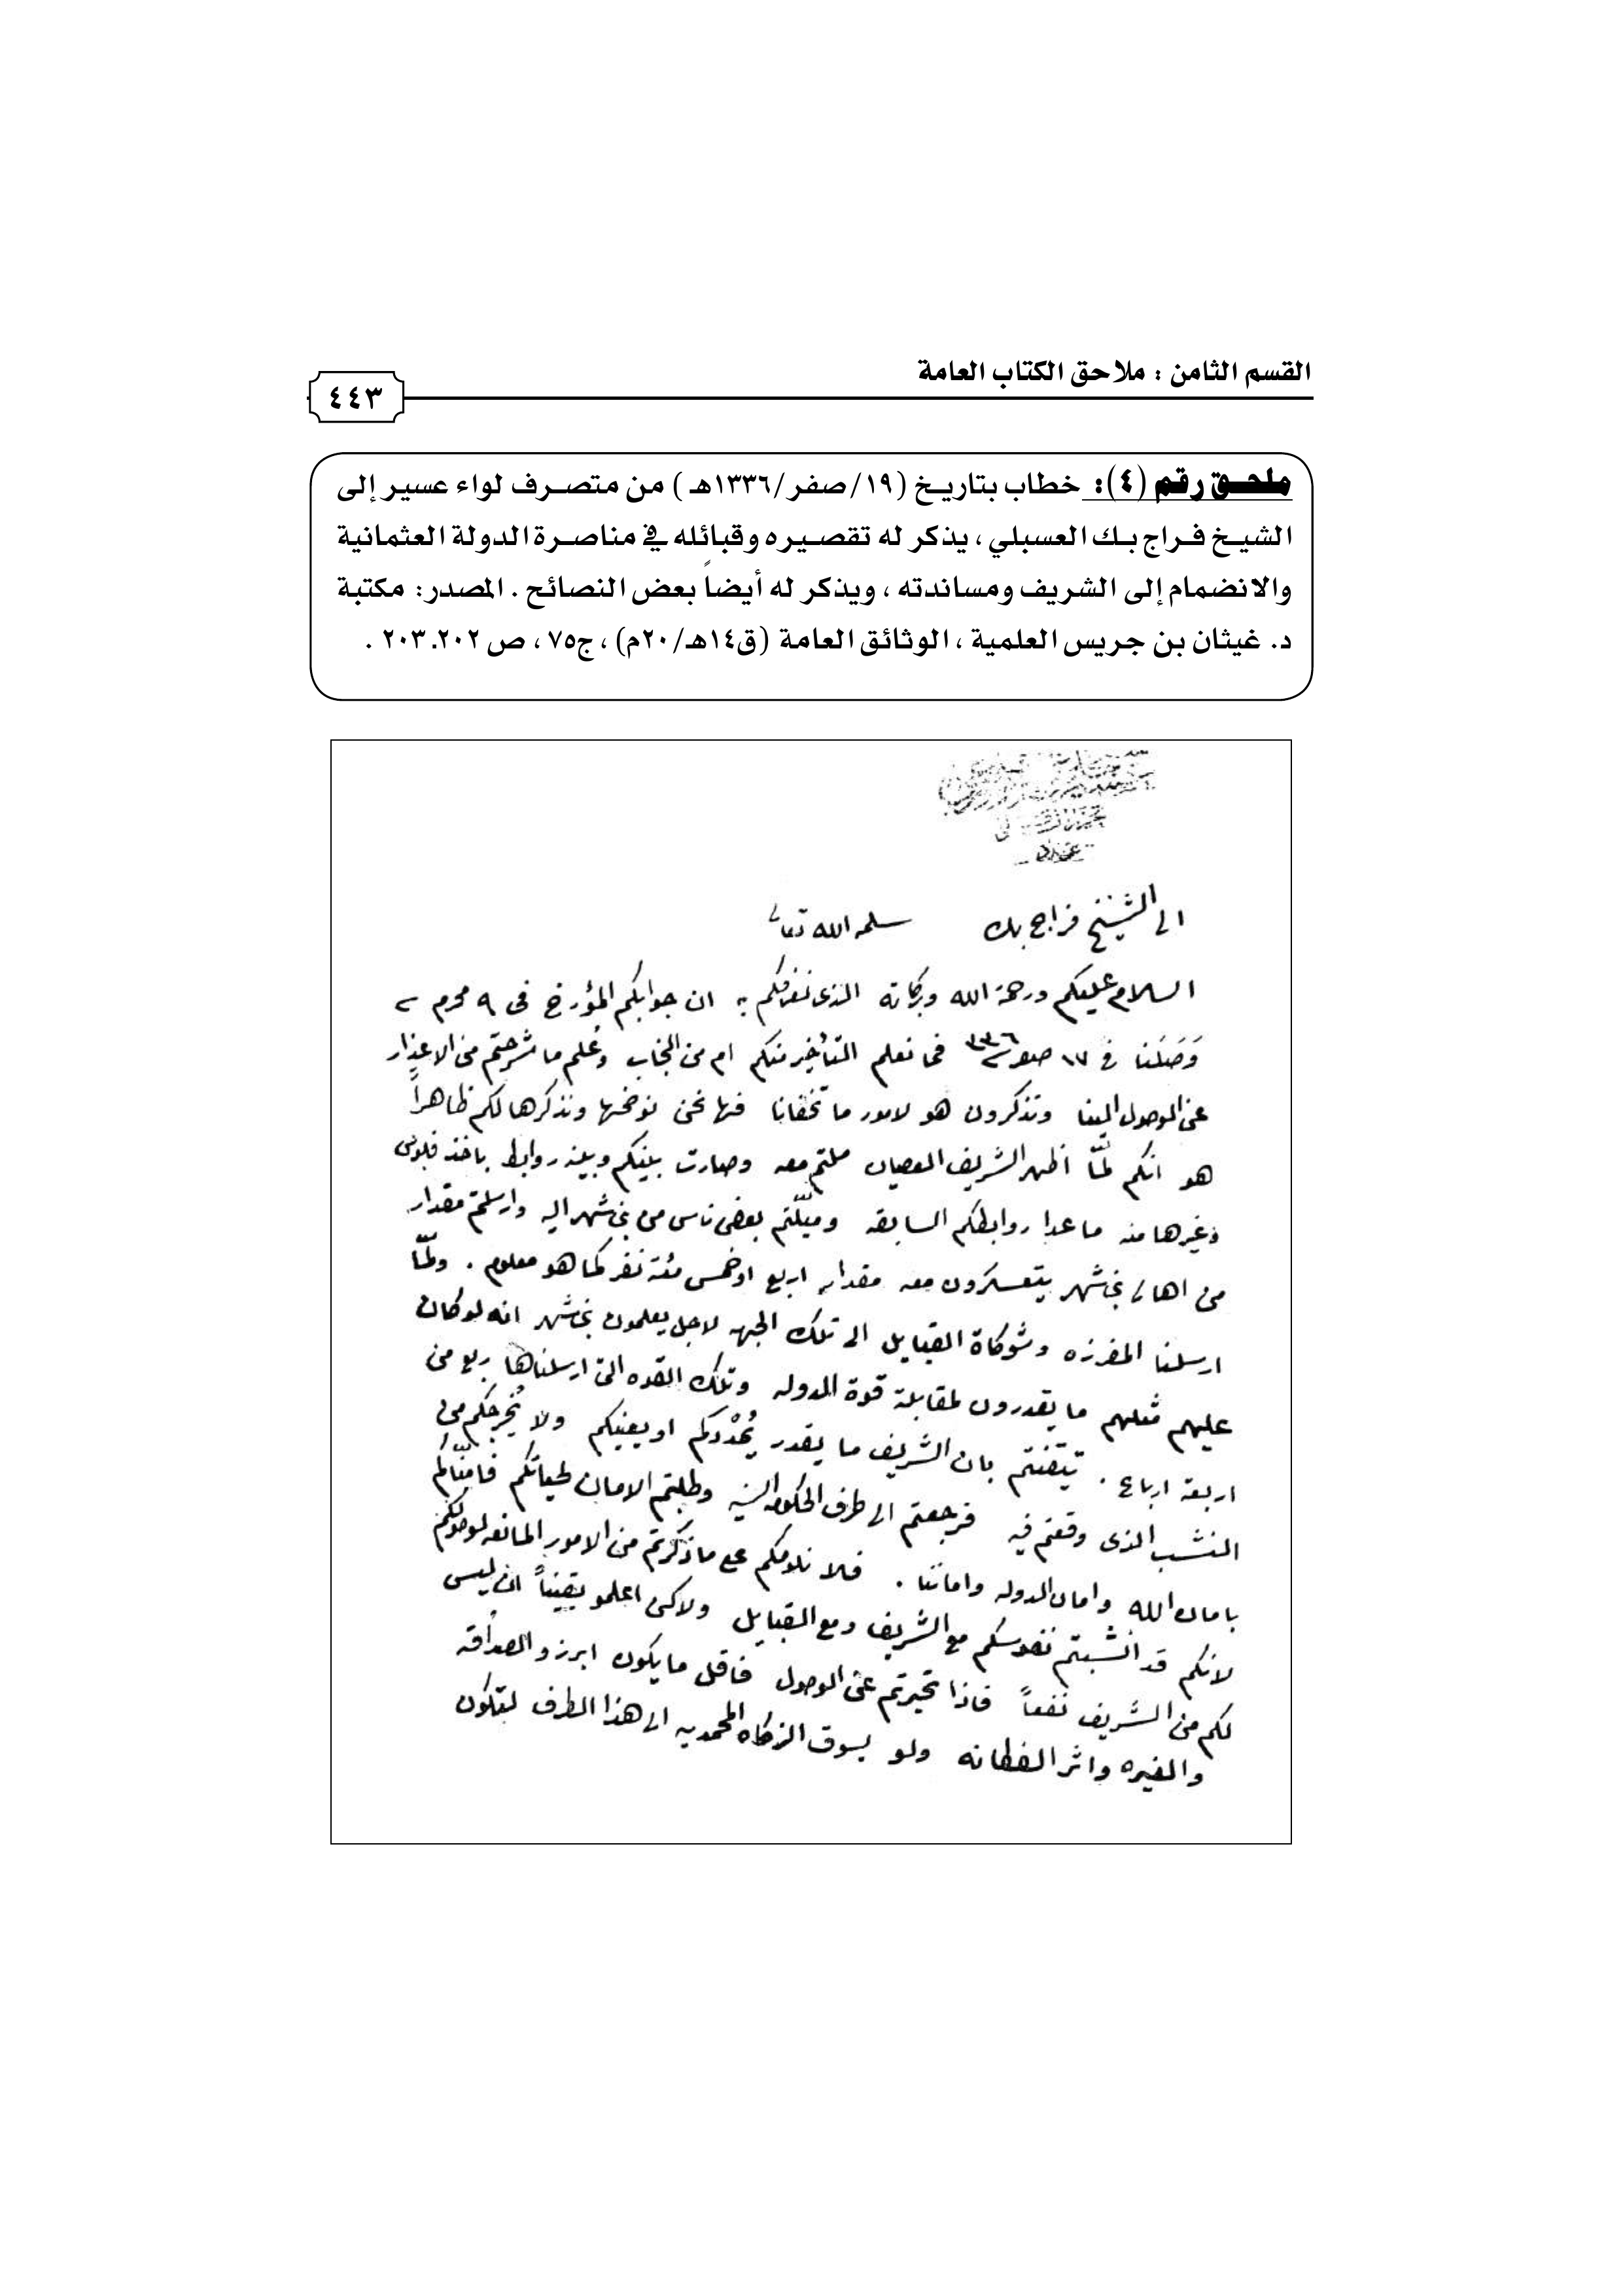 القسم الثامن : ملاحق الكتاب العامة
٤٤٣
ملحـــق رقم (٤): خطاب بتاريـخ (١٩/صفر/١٣٣٦هـ ) من متصـرف لواء عسيـر إلى
الشيـخ فـراج بـك العسبلي ، يذكر له تقصـيره وقبائله في مناصـرة الدولة العثمانية
والانضمام إلى الشريف ومساندته ، ويذكر له أيضاً بعض النصائح . المصدر: مكتبة
د. غيثان بن جريس العلمية ، الوثائق العامة (ق١٤هـ/٢٠م) ، ج٧٥ ، ص ٢٠٢.٢٠٣ .
الى الشيخ فراج بك سلمه الله تعالى
السلام عليكم ورحمة الله وبركاته الذى نعرفكم به ان جوابكم المؤرخ فى ٩ محرم
وَصَلَنا في ١٧ صفر ٣٣٦ فما نعلم التأخير منكم ام من النجاب وعُلم ما شرحتم من الاعذار
عن الوصول الينا وتذكرون هو لامور ما تخفانا فها نحن نوضحها ونذكرها لكم ظاهراً
هو انكم لمّا اظهر الشريف العصيان ملتم معه وصارت بينكم وبينه روابط باخذ فلوس
وغيرها منه ما عدا روابطكم السابقه وميّلتم بعض ناس من بنى شهر اليه وارسلتم مقدار
من اهالى بنى شهر يتعسكرون معه مقدار اربع او خمس مئة نفر كما هو معلوم . ولمّا
ارسلنا المفرزه وشوكاة القبايل الى تلك الجهه لاجل يعلمون بنى شهر انه لو كان
عليهم مثلهم ما يقدرون لمقابلة قوة الدوله وتلك القوه التى ارسلناها ربع من
اربعة ارباع . تيقنتم بان الشريف ما يقدر يُمْدِدكم او يعينكم ولا يُخرجكم من
النشب الذى وقعتم فيه فرجعتم الى طرف الحكومه السنيه وطلبتم الامان لحياتكم فامنّاكم
بامان الله وامان الدوله واماننا . فلا نلومكم على ما ذكرتم من الامور المانعه لوصولكم
لانكم قد انشبتم نفوسكم مع الشريف ومع القبايل ولاكن اعلمو يقيناً ان ليس
لكم من الشريف نفعاً فاذا تحيرتم عن الوصول فاقل ما يكون ابرزو الصداقه
والغيره واثر الفطانه ولو بسوق الزكاه المحمديه الى هذا الطرف لتكون